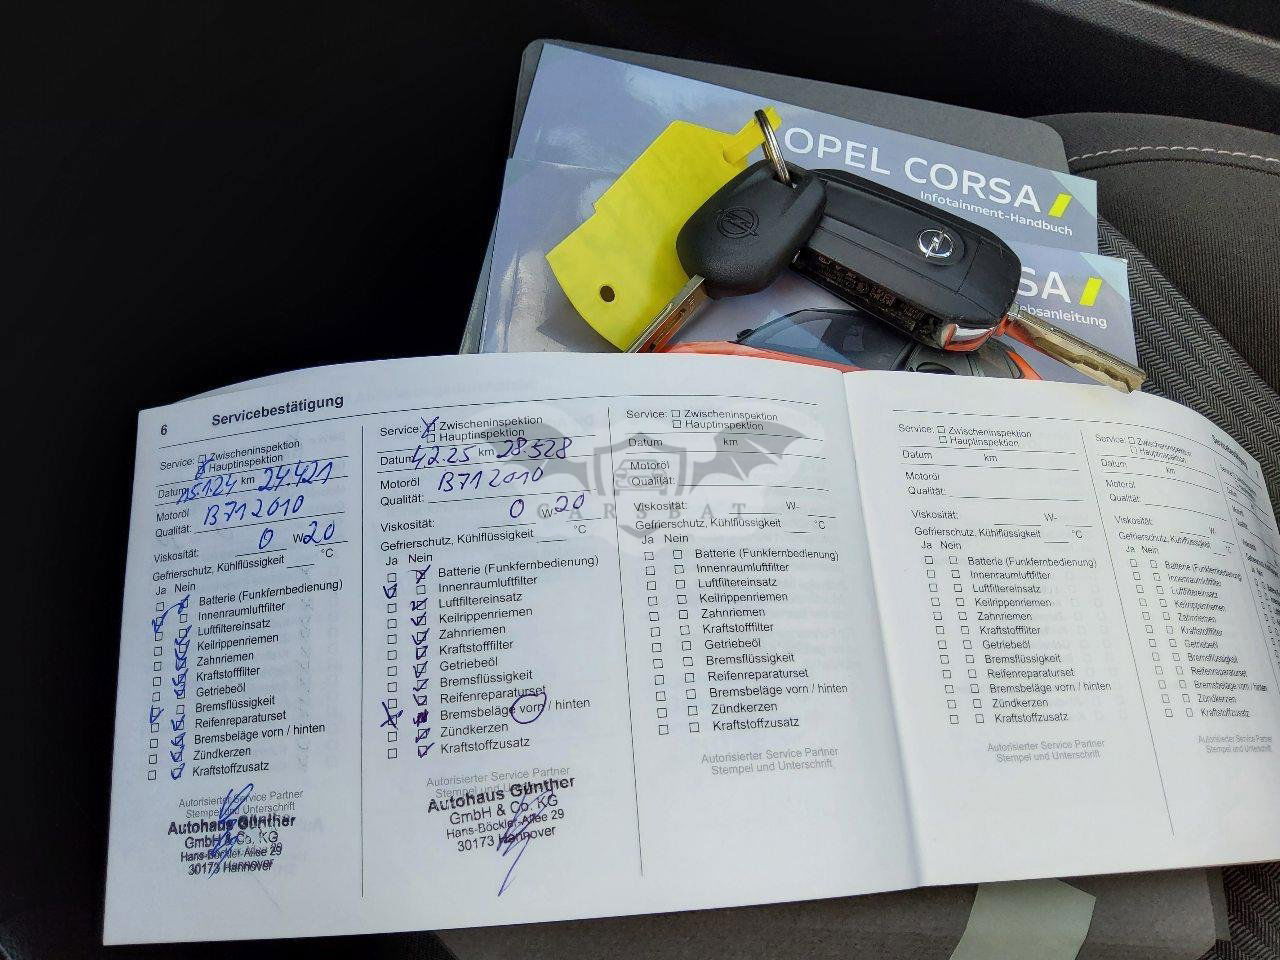 OPEL CORSA
Infotainment-Handbuch
SA
ebsanleitung
6 Servicebestätigung
Service: Zwischeninspektion
Hauptinspektion
Datum 15.1.24 km 24.421
Motoröl
Qualität: B71 2010
Viskosität: 0 W 20
Gefrierschutz, Kühlflüssigkeit °C
Ja Nein
Batterie (Funkfernbedienung)
Innenraumluftfilter
Luftfiltereinsatz
Keilrippenriemen
Zahnriemen
Kraftstofffilter
Getriebeöl
Bremsflüssigkeit
Reifenreparaturset
Bremsbeläge vorn / hinten
Zündkerzen
Kraftstoffzusatz
Autorisierter Service Partner
Stempel und Unterschrift
Autohaus Günther
GmbH & Co. KG
Hans-Böckler-Allee 29
30173 Hannover
Service: Zwischeninspektion
Hauptinspektion
Datum 4.2.25 km 28.528
Motoröl
Qualität: B71 2010
Viskosität: 0 W 20
Gefrierschutz, Kühlflüssigkeit °C
Ja Nein
Batterie (Funkfernbedienung)
Innenraumluftfilter
Luftfiltereinsatz
Keilrippenriemen
Zahnriemen
Kraftstofffilter
Getriebeöl
Bremsflüssigkeit
Reifenreparaturset
Bremsbeläge vorn / hinten
Zündkerzen
Kraftstoffzusatz
Autorisierter Service Partner
Stempel und Unterschrift
Autohaus Günther
GmbH & Co. KG
Hans-Böckler-Allee 29
30173 Hannover
Service: Zwischeninspektion
Hauptinspektion
Datum km
Motoröl
Qualität:
W-
Gefrierschutz, Kühlflüssigkeit °C
Ja Nein
Batterie (Funkfernbedienung)
Innenraumluftfilter
Luftfiltereinsatz
Keilrippenriemen
Zahnriemen
Kraftstofffilter
Getriebeöl
Bremsflüssigkeit
Reifenreparaturset
Bremsbeläge vorn / hinten
Zündkerzen
Kraftstoffzusatz
Autorisierter Service Partner
Stempel und Unterschrift
CARSBAT
Service: Zwischeninspektion
Hauptinspektion
Datum km
Motoröl
Qualität:
Viskosität: W-
Gefrierschutz, Kühlflüssigkeit °C
Ja Nein
Batterie (Funkfernbedienung)
Innenraumluftfilter
Luftfiltereinsatz
Keilrippenriemen
Zahnriemen
Kraftstofffilter
Getriebeöl
Bremsflüssigkeit
Reifenreparaturset
Bremsbeläge vorn / hinten
Zündkerzen
Kraftstoffzusatz
Autorisierter Service Partner
Stempel und Unterschrift
Service: Zwischeninspektion
Hauptinspektion
Datum km
Motoröl
Qualität:
Viskosität: W-
Gefrierschutz, Kühlflüssigkeit °C
Ja Nein
Batterie (Funkfernbedienung)
Innenraumluftfilter
Luftfiltereinsatz
Keilrippenriemen
Zahnriemen
Kraftstofffilter
Getriebeöl
Bremsflüssigkeit
Reifenreparaturset
Bremsbeläge vorn / hinten
Zündkerzen
Kraftstoffzusatz
Autorisierter Service Partner
Stempel und Unterschrift